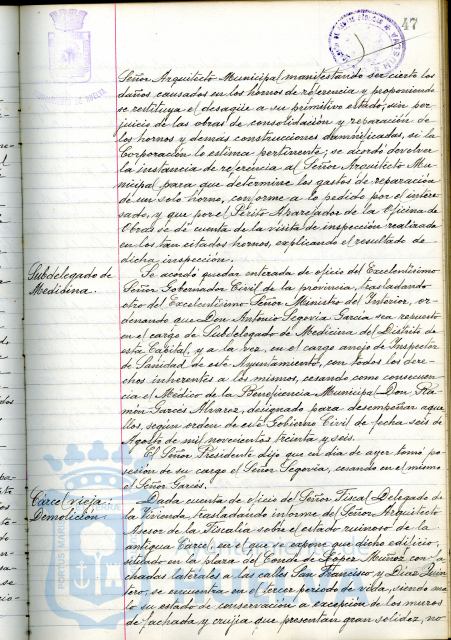 47
Señor Arquitecto Municipal manifestando ser cierto los
daños causados en los hornos de referencia y proponiendo
se restituya el desagüe a su primitivo estado, sin per-
juicio de las obras de consolidación y reparación de
los hornos y demás construcciones damnificadas, si la
Corporación lo estima pertinente; se acordó devolver
la instancia de referencia al Señor Arquitecto Mu-
nicipal para que determine los gastos de reparación
de un solo horno, conforme a lo pedido por el intere-
sado, y que por el Perito Aparejador de la Oficina de
Obras se dé cuenta de la visita de inspección realizada
en los tan citados hornos, explicando el resultado de
dicha inspección.
Subdelegado de
Medicina.
Se acordó quedar enterada de oficio del Excelentísimo
Señor Gobernador Civil de la provincia, trasladando
otro del Excelentísimo Señor Ministro del Interior, or-
denando que Don Antonio Segovia García sea repuesto
en el cargo de Subdelegado de Medicina del Distrito de
esta Capital, y a la vez, en el cargo anejo de Inspector
de Sanidad de este Ayuntamiento, con todos los dere-
chos inherentes a los mismos, cesando como consecuen-
cia el Médico de la Beneficencia Municipal Don Ra-
món Garcés Alvarez, designado para desempeñar aque-
llos, según orden de este Gobierno Civil de fecha seis de
Agosto de mil novecientos treinta y seis.
El Señor Presidente dijo que en día de ayer tomó po-
sesión de su cargo el Señor Segovia, cesando en el mismo
el Señor Garcés.
Cárcel vieja:
Demolición.
Dada cuenta de oficio del Señor Fiscal Delegado de
la Vivienda, trasladando informe del Señor Arquitecto
Asesor de la Fiscalía sobre el estado ruinoso de la
antigua Cárcel, en el que se expone que dicho edificio,
situado en la plaza del Conde de López Muñoz con fa-
chadas laterales a las calles San Francisco y Díaz Quin-
tero, se encuentra en el tercer periodo de vida, siendo ma-
lo su estado de conservación a excepción de los muros
de fachada y crujía que presentan gran solidez, no